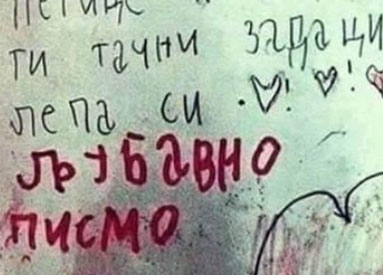 ти тачни задаци
лепа си .♡! ♡!
љубавно
писмо